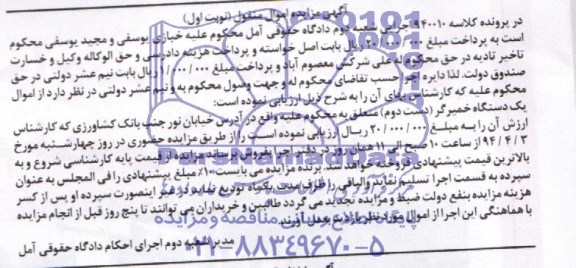 آگهی مزایده اموال منقول (نوبت اول)
در پرونده کلاسه ۹۴۰۰۱۰ اجرایی شعبه دوم دادگاه حقوقی آمل محکوم علیه خبازی یوسفی و مجید یوسفی محکوم
است به پرداخت مبلغ ریال بابت اصل خواسته و پرداخت هزینه دادرسی و حق الوکاله وکیل و خسارت
تاخیر تادیه در حق محکوم له علی شرکس معصوم آباد و پرداخت مبلغ ۱/۰۰۰/۰۰۰ ریال بابت نیم عشر دولتی در حق
صندوق دولت. لذا دایره اجرا حسب تقاضای محکوم له و جهت وصول محکوم به و نیم عشر دولتی در نظر دارد از اموال
محکوم علیه که کارشناس بهای آن را به شرح ذیل ارزیابی نموده است:
یک دستگاه خمیرگیر (دست دوم) متعلق به محکوم علیه واقع در آدرس خیابان نور جنب بانک کشاورزی که کارشناس
ارزش آن را به مبلغ ۲۰/۰۰۰/۰۰۰ ریال ارزیابی نموده است را از طریق مزایده حضوری در روز چهارشنبه مورخ
۹۴/۴/۳ از ساعت ۱۰ صبح الی ۱۱ همان روز در دفتر اجرا بفروش برساند مزایده از قیمت پایه کارشناسی شروع و به
بالاترین قیمت پیشنهادی فروخته خواهد شد. برنده مزایده می بایست ۱۰٪ مبلغ پیشنهادی را فی المجلس به عنوان
سپرده به قسمت اجرا تسلیم نماید و الباقی را ظرف مدت یکماه تودیع نماید در غیر اینصورت سپرده او پس از کسر
هزینه مزایده بنفع دولت ضبط و مزایده تجدید می گردد طالبین و خریداران می توانند تا پنج روز قبل از انجام مزایده
با هماهنگی این اجرا از اموال مورد نظر بازدید بعمل آورند.
مدیر شعبه دوم اجرای احکام دادگاه حقوقی آمل
ParsNamadData
پایگاه اطلاع رسانی مناقصه و مزایده
۰۲۱-۸۸۳۴۹۶۷۰-۵